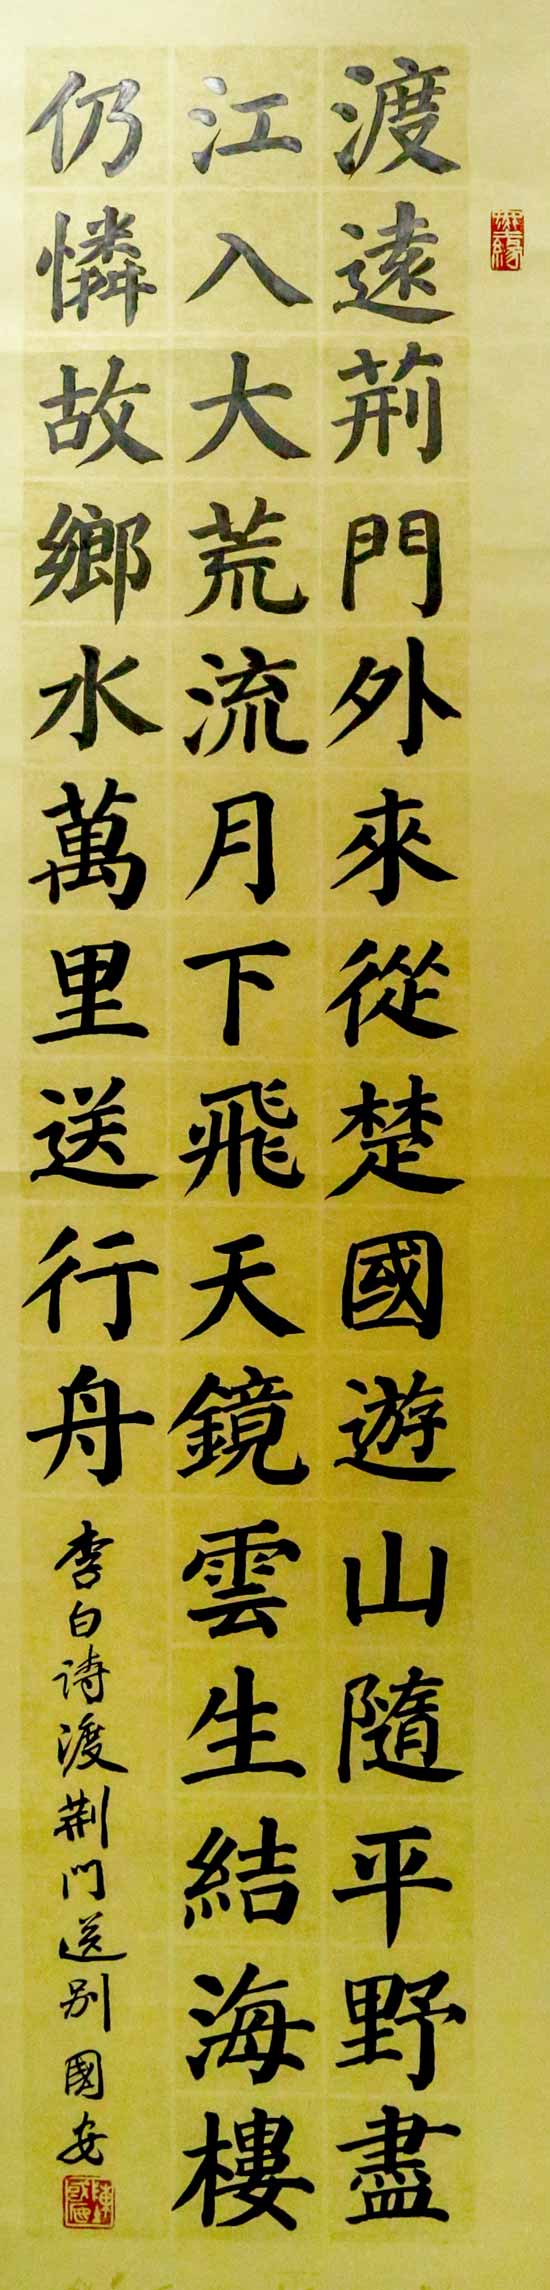 渡遠荊門外來從楚國遊山隨平野盡
江入大荒流月下飛天鏡雲生結海樓
仍憐故鄉水萬里送行舟
李白诗渡荆门送别國安